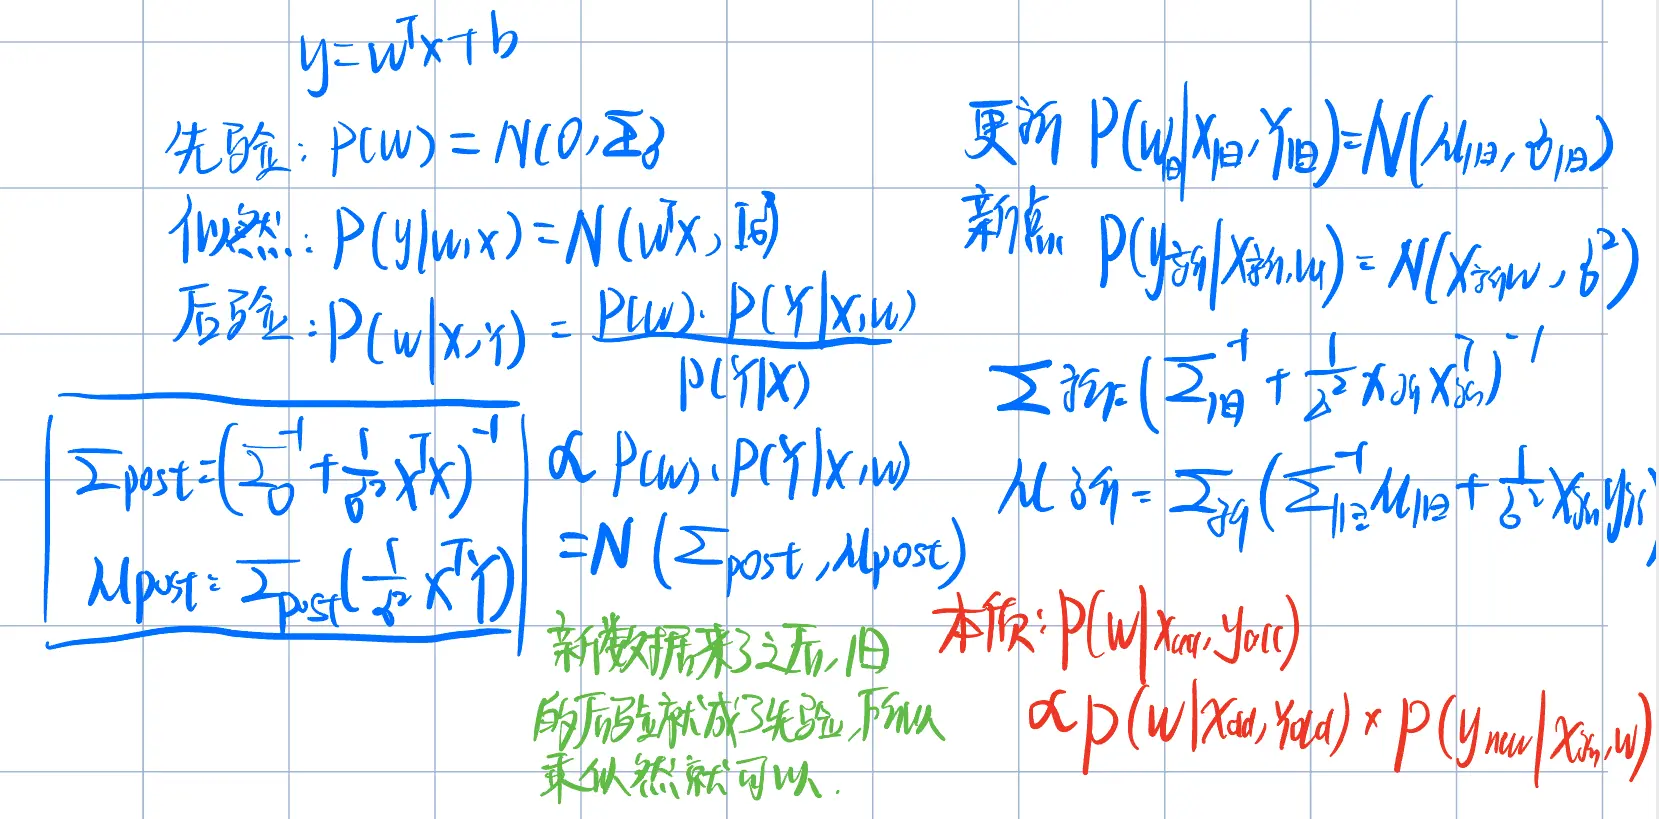 y=wᵀx+b
先验: P(w) = N(0, Σ₀)
似然: P(y|w,x) = N(wᵀx, Iσ²)
后验: P(w|X,Y) = P(w)·P(Y|X,w) / P(Y|X)
∝ P(w)·P(Y|X,w)
=N(Σpost, μpost)
Σpost=(Σ₀⁻¹+1/σ² XᵀX)⁻¹
μpost=Σpost(1/σ² XᵀY)
新数据来了之后,旧
的后验就成了先验,所以
乘似然就可以.
更新 P(w旧|X旧,Y旧)=N(μ旧, σ旧)
新点 P(y新|X新,w) = N(X新w, σ²)
Σ新=(Σ旧⁻¹+1/σ² x新x新ᵀ)⁻¹
μ新=Σ新(Σ旧⁻¹μ旧+1/σ² x新y新)
本质: P(w|Xall, yall)
∝P(w|Xold, Yold) × P(ynew|X新,w)